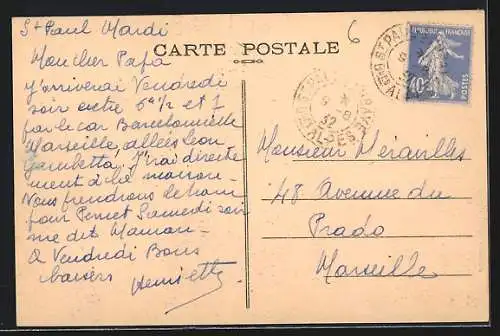 St Paul Mardi
CARTE POSTALE
6
Mon cher Papa
J'arriverai Vendredi
soir entre 6h 1/2 et 7
par le car Barcelonnette
Marseille, allées Léon
Gambetta. J'irai directe
ment à la maison -
Nous prendrons le train
pour Pernet Samedi soir
me dit Maman -
A Vendredi Bons
baisers Henriette
REPUBLIQUE FRANÇAISE
40c
POSTES
ST PAUL
32
Bses ALPES
Monsieur Mérailles
48 Avenue du
Prado
Marseille